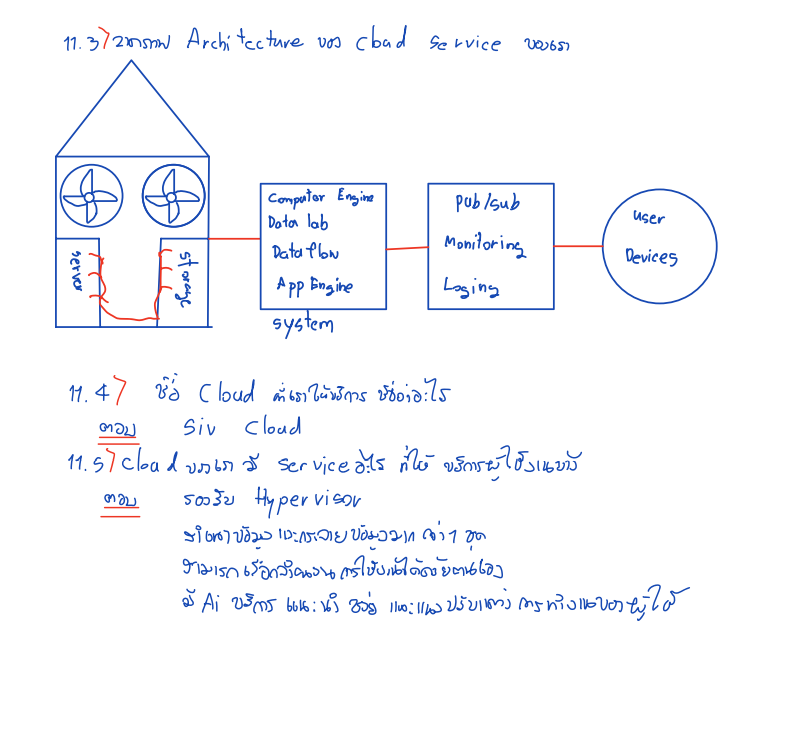 11.3> วาดภาพ Architecture ของ Cloud Service ของเรา
server
storage
Computer Engine
Data lab
Data flow
App Engine
system
Pub/Sub
Monitoring
Loging
User
Devices
11.4> ชื่อ Cloud ที่เราให้บริการ ชื่อว่าอะไร
ตอบ Siv Cloud
11.5> Cloud ของเรา มี service อะไร ที่ให้ บริการผู้ใช้งานบ้าง
ตอบ รองรับ Hypervisor
สำเนาข้อมูล และกระจาย ข้อมูลมาก กว่า 1 ชุด
สามารถ เลือกจำนวน การใช้งานได้ด้วยตนเอง
มี Ai บริการ แนะนำ ช่วย และ ปรับแต่ง การทำงานของผู้ใช้